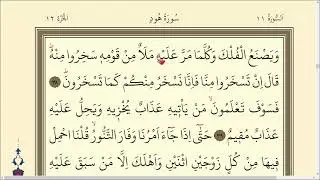 الجزء ١٢ سورة هود السورة ١١
وَيَصْنَعُ الْفُلْكَ وَكُلَّمَا مَرَّ عَلَيْهِ مَلَأٌ مِنْ قَوْمِهِ سَخِرُوا مِنْهُ
قَالَ اِنْ تَسْخَرُوا مِنَّا فَاِنَّا نَسْخَرُ مِنْكُمْ كَمَا تَسْخَرُونَ
فَسَوْفَ تَعْلَمُونَ مَنْ يَأْتِيهِ عَذَابٌ يُخْزِيهِ وَيَحِلُّ عَلَيْهِ
عَذَابٌ مُقِيمٌ حَتّٰى اِذَا جَاءَ اَمْرُنَا وَفَارَ التَّنُّورُ قُلْنَا احْمِلْ
فِيهَا مِنْ كُلٍّ زَوْجَيْنِ اثْنَيْنِ وَاَهْلَكَ اِلَّا مَنْ سَبَقَ عَلَيْهِ